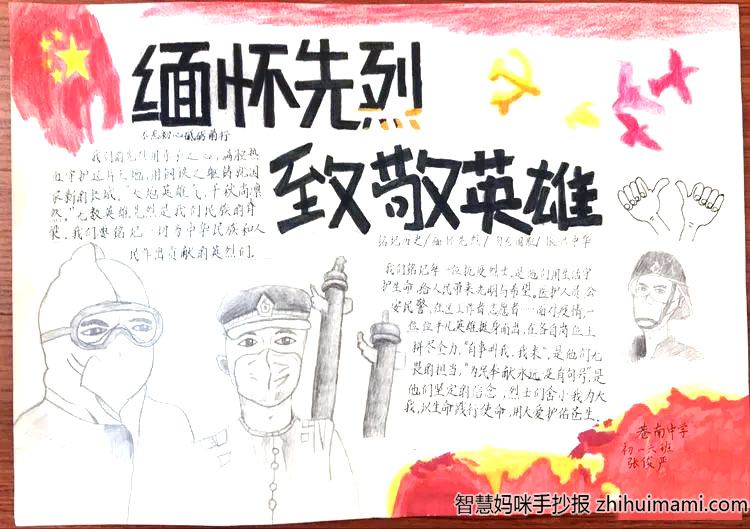 缅怀先烈
致敬英雄
不忘初心 砥砺前行
我们的先烈用赤子之心，满腔热
血守护这片大地，用钢铁之躯铸就国
家新的长城，"天地英雄气，千秋尚凛
然。"无数英雄先烈是我们民族的脊
梁。我们要铭记一切为中华民族和人
民作出贡献的英烈们。
铭记历史/缅怀先烈/勿忘国耻/振兴中华
我们铭记每一位抗疫烈士，是他们用生活守
护生命，给人民带来光明与希望。医护人员，公
安民警，社区工作者志愿者…面对疫情，一
位位平凡英雄挺身而出，在各自岗位上
拼尽全力。"有事叫我，我来"，是他们无
畏的担当，"为民奉献永远是有句号"是
他们坚定的信念，烈士们舍小我为大
我，以生命践行使命，用大爱护佑苍生。
苍南中学
初一 班
张俊严
智慧妈咪手抄报 zhihuimami.com